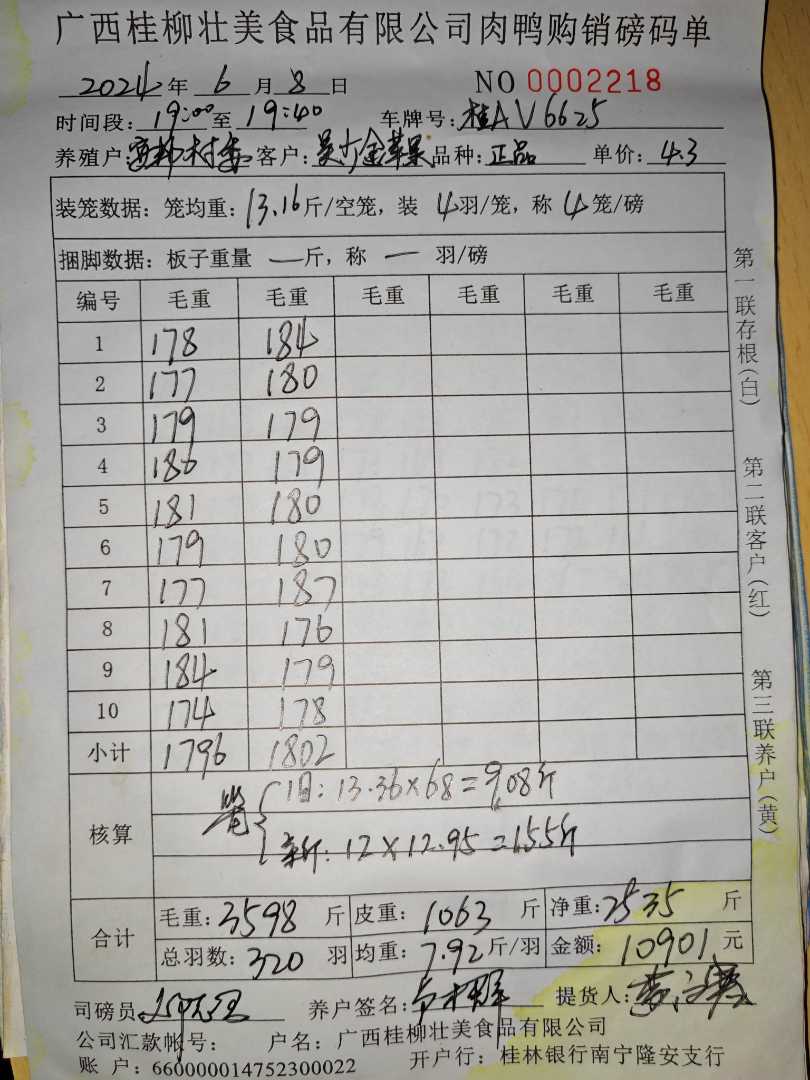 广西桂柳壮美食品有限公司肉鸭购销磅码单
2024 年 6 月 8 日 NO 0002218
时间段: 19:00 至 19:40 车牌号: 桂AV6625
养殖户: 村委 客户: 吴 金苹果 品种: 正品 单价: 4.3
装笼数据: 笼均重: 13.16 斤/空笼, 装 4 羽/笼, 称 4 笼/磅
捆脚数据: 板子重量 — 斤, 称 — 羽/磅
编号 毛重 毛重 毛重 毛重 毛重 毛重
1 178 184
2 177 180
3 179 179
4 180 179
5 181 180
6 179 180
7 177 187
8 181 176
9 184 179
10 174 178
小计 1796 1802
核算
旧: 13.36×68=908斤
新: 12×12.95=155斤
合计
毛重: 3598 斤 皮重: 1063 斤 净重: 2535 斤
总羽数: 320 羽 均重: 7.92 斤/羽 金额: 10901 元
司磅员 养户签名: 提货人:
公司汇款帐号: 户名: 广西桂柳壮美食品有限公司
账 户: 660000014752300022 开户行: 桂林银行南宁隆安支行
第一联存根(白)
第二联客户(红)
第三联养户(黄)